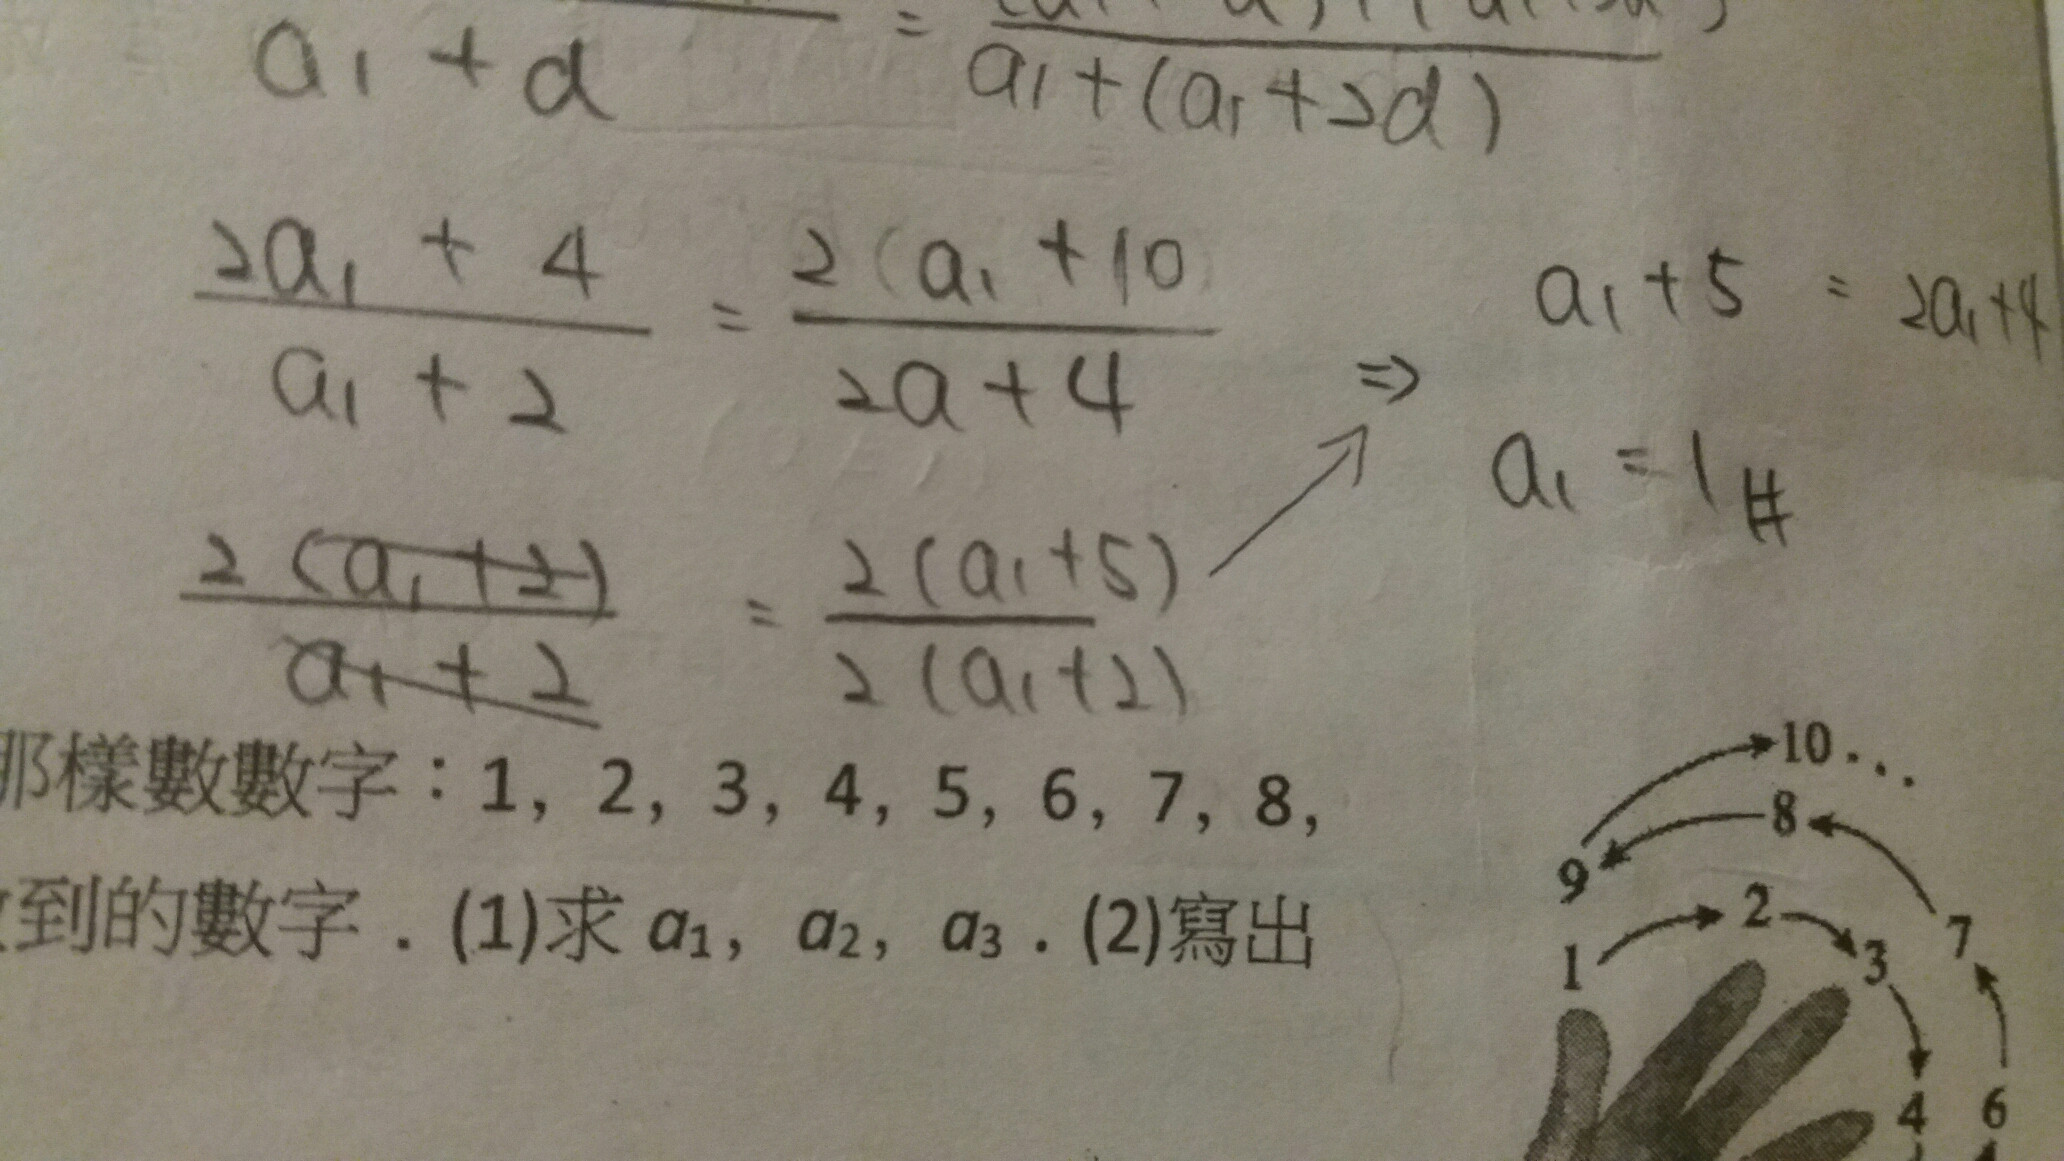 a₁ + d = a₁ + (a₁ + 2d)
2a₁ + 4 / a₁ + 2 = 2(a₁ + 10 / 2a + 4
⇒ a₁ + 5 = 2a₁ + 4
a₁ = 1 #
2(a₁ + 2) / a₁ + 2 = 2(a₁ + 5) / 2(a₁ + 2)
那樣數數字：1，2，3，4，5，6，7，8，
到的數字．(1)求 a₁，a₂，a₃．(2)寫出
10...
8
9
2
1
3
7
4
6